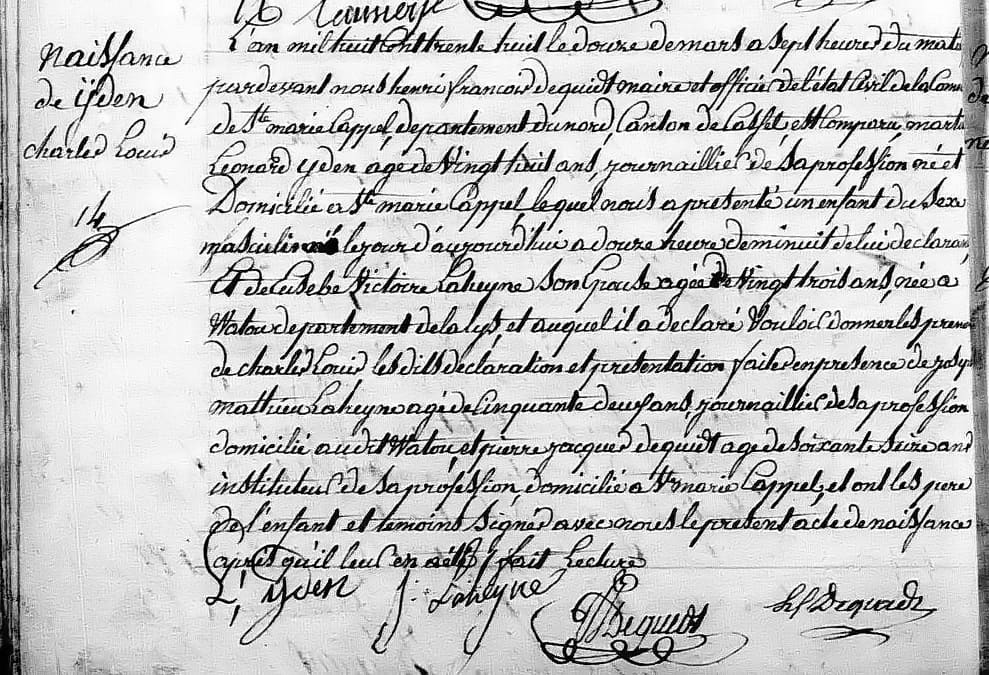 naissance
de ÿden
charles Louis
14
L'an mil huit cent trente huit le douze de mars a sept heures du mati
pardevant nous henri francois dequidt maire et officier de l'état Civil de la Com
de Ste marie Cappel, departement du nord, Canton de Cassel est Comparu, martin
Leonard yden agé de Vingt huit ans, journaillier de sa profession né et
Domicilié a Ste marie Cappel, lequel nous a presenté un enfant du Sex
masculin né le jour d'aujourd'hui a douze heure de minuit de lui declarant
Et de Eusebe Victoire Laheyne Son Epouse agée de Vingt trois ans, née a
Watou departement de la lys, et auquel il a declaré Vouloir donner les preno
de charles Louis les dits declaration et présentation faites en presence de
mathieu Laheyne agé de Cinquante deux ans, journaillier de sa profession
domicilié audit Watou, et pierre jacques dequidt age de soixante Seize ans
instituteur de sa profession, domicilié a Ste marie Cappel, et ont les pere
de l'enfant et temoins Signés avec nous le present acte de naissance
après qu'il leur en a été fait Lecture
L, yden J. Laheyne Dequidt hf Dequidt